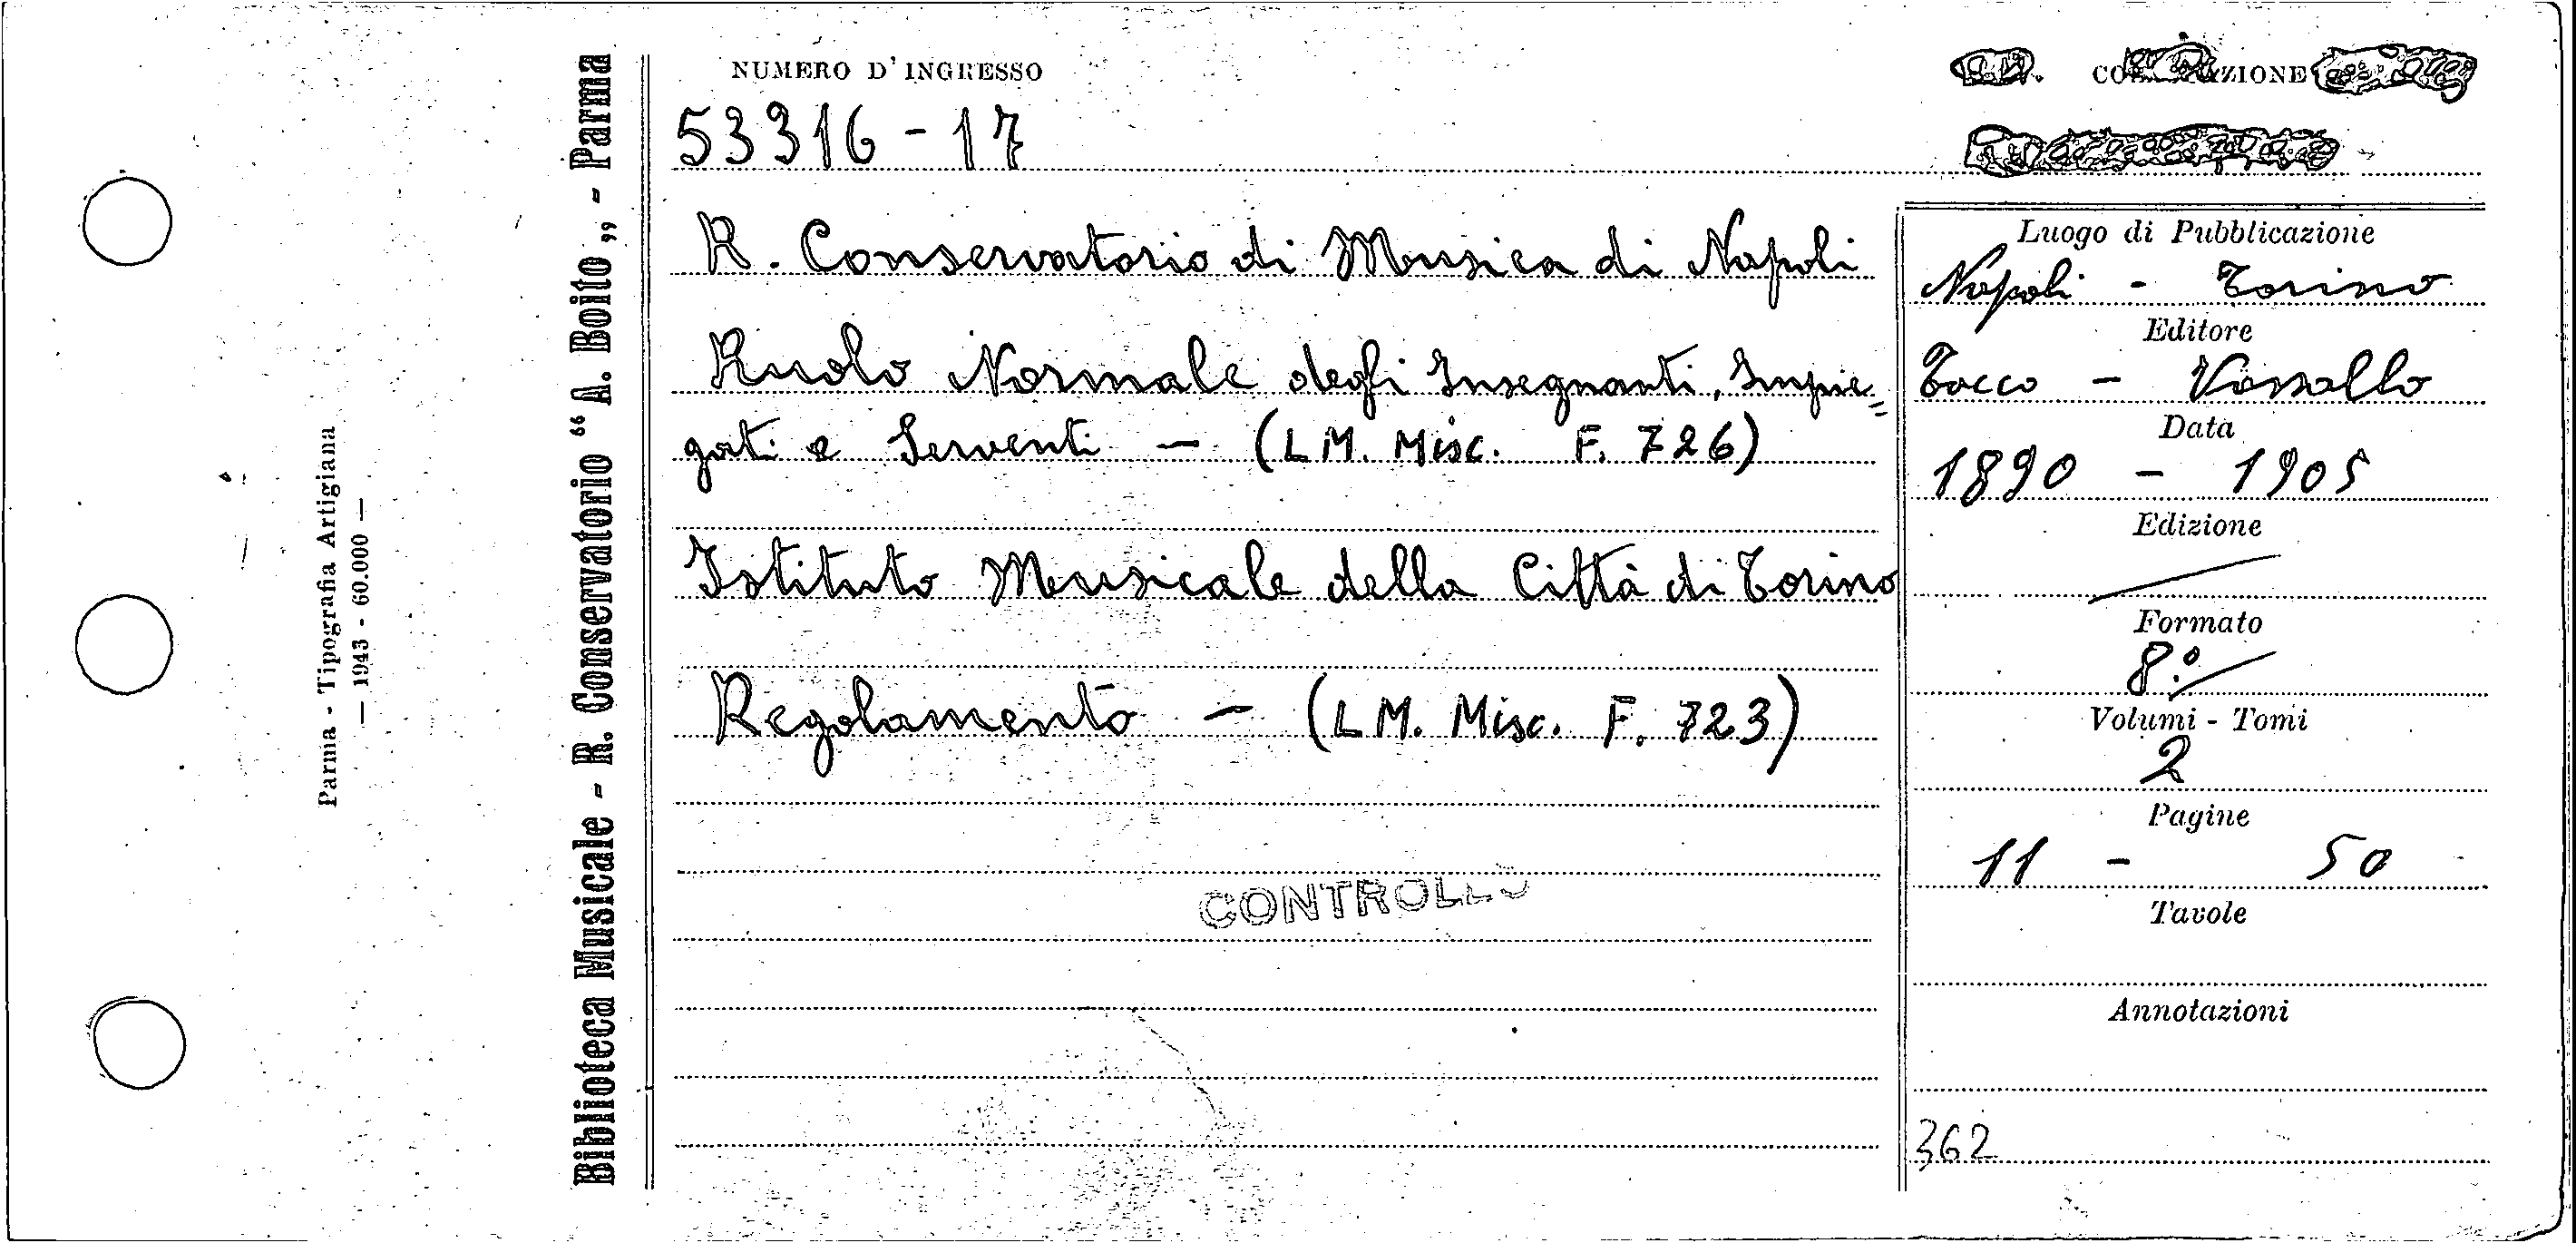 NUMERO D'INGRESSO
53316 - 17
R. Conservatorio di Musica di Napoli
Ruolo Normale degli Insegnanti, Impie=
gati e Serventi — (LM. Misc. F. 726)
Istituto Musicale della Città di Torino
Regolamento — (LM. Misc. F. 723)
CONTROLLO
Luogo di Pubblicazione
Napoli - Torino
Editore
Tocco - Vassallo
Data
1890 - 1905
Edizione
Formato
8°
Volumi - Tomi
2
Pagine
11 - 50
Tavole
Annotazioni
362
Biblioteca Musicale - R. Conservatorio “A. Boito„ - Parma
Parma - Tipografia Artigiana
— 1943 - 60.000 —